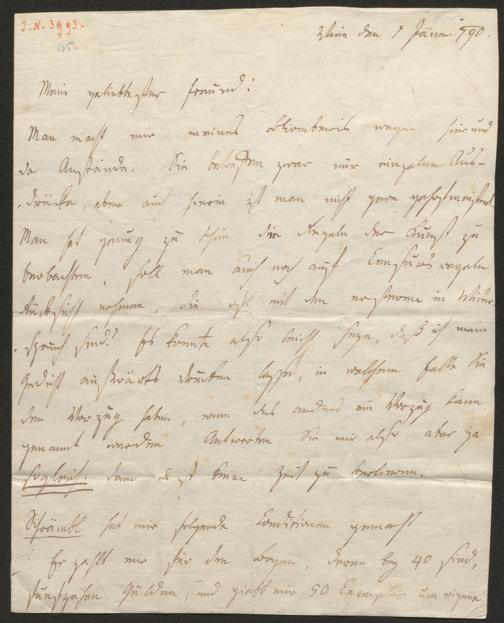 I.N. 3993.
Wien den 1 Jäner 790.
Mein geliebtester Freund!
Man macht mir meines wegen hier und
da Anstände. Sie betreffen zwar nur einzelne Aus-
drücke, aber auch hierin ist man nicht gern
Man hat genug zu thun die Regeln der Kunst zu
beobachten, soll man auch noch auf Censurs regeln
Rücksicht nehmen, die oft mit den in Wider-
spruch sind? Es könnte also leicht seyn, daß ich mein
Gedicht auswärts drucken lasse, in welchem Falle Sie
den Vorzug haben, wenn das anders ein Vorzug kann
genannt werden. Antworten Sie mir also, aber ja
sogleich: denn es ist keine Zeit zu verlieren.
Schrämbl hat mir folgende Conditionen gemacht
Er zahlt mir für den Bogen, deren bey 40 sind,
Gulden, und giebt mir 50 Exemplar um eigene